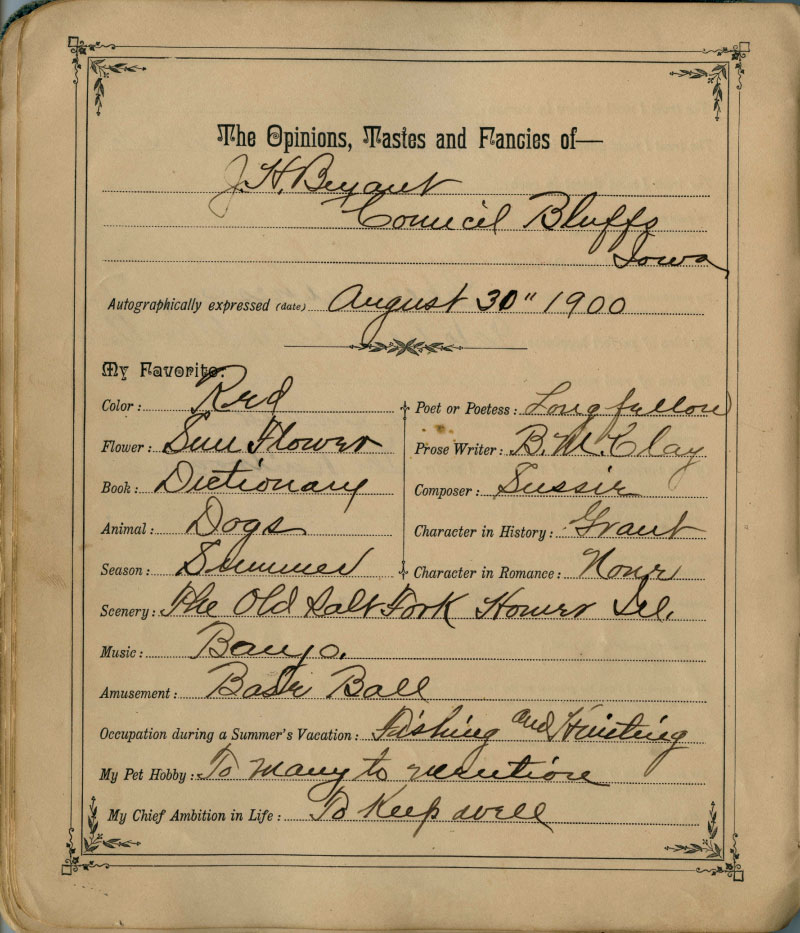 The Opinions, Tastes and Fancies of—
J. H. Bryant
Council Bluffs
Iowa
Autographically expressed (date) August 30" 1900
My Favorite:
Color: Red
Flower: Sun Flower
Book: Dictionary
Animal: Dogs
Season: Summer
Poet or Poetess: Longfellow
Prose Writer: B. M. Clay
Composer: Sussie
Character in History: Grant
Character in Romance: None
Scenery: The Old Salt Fork Homer Ill.
Music: Banjo.
Amusement: Base Ball
Occupation during a Summer's Vacation: Fishing and Hunting
My Pet Hobby: To many to mention
My Chief Ambition in Life: To Keep well